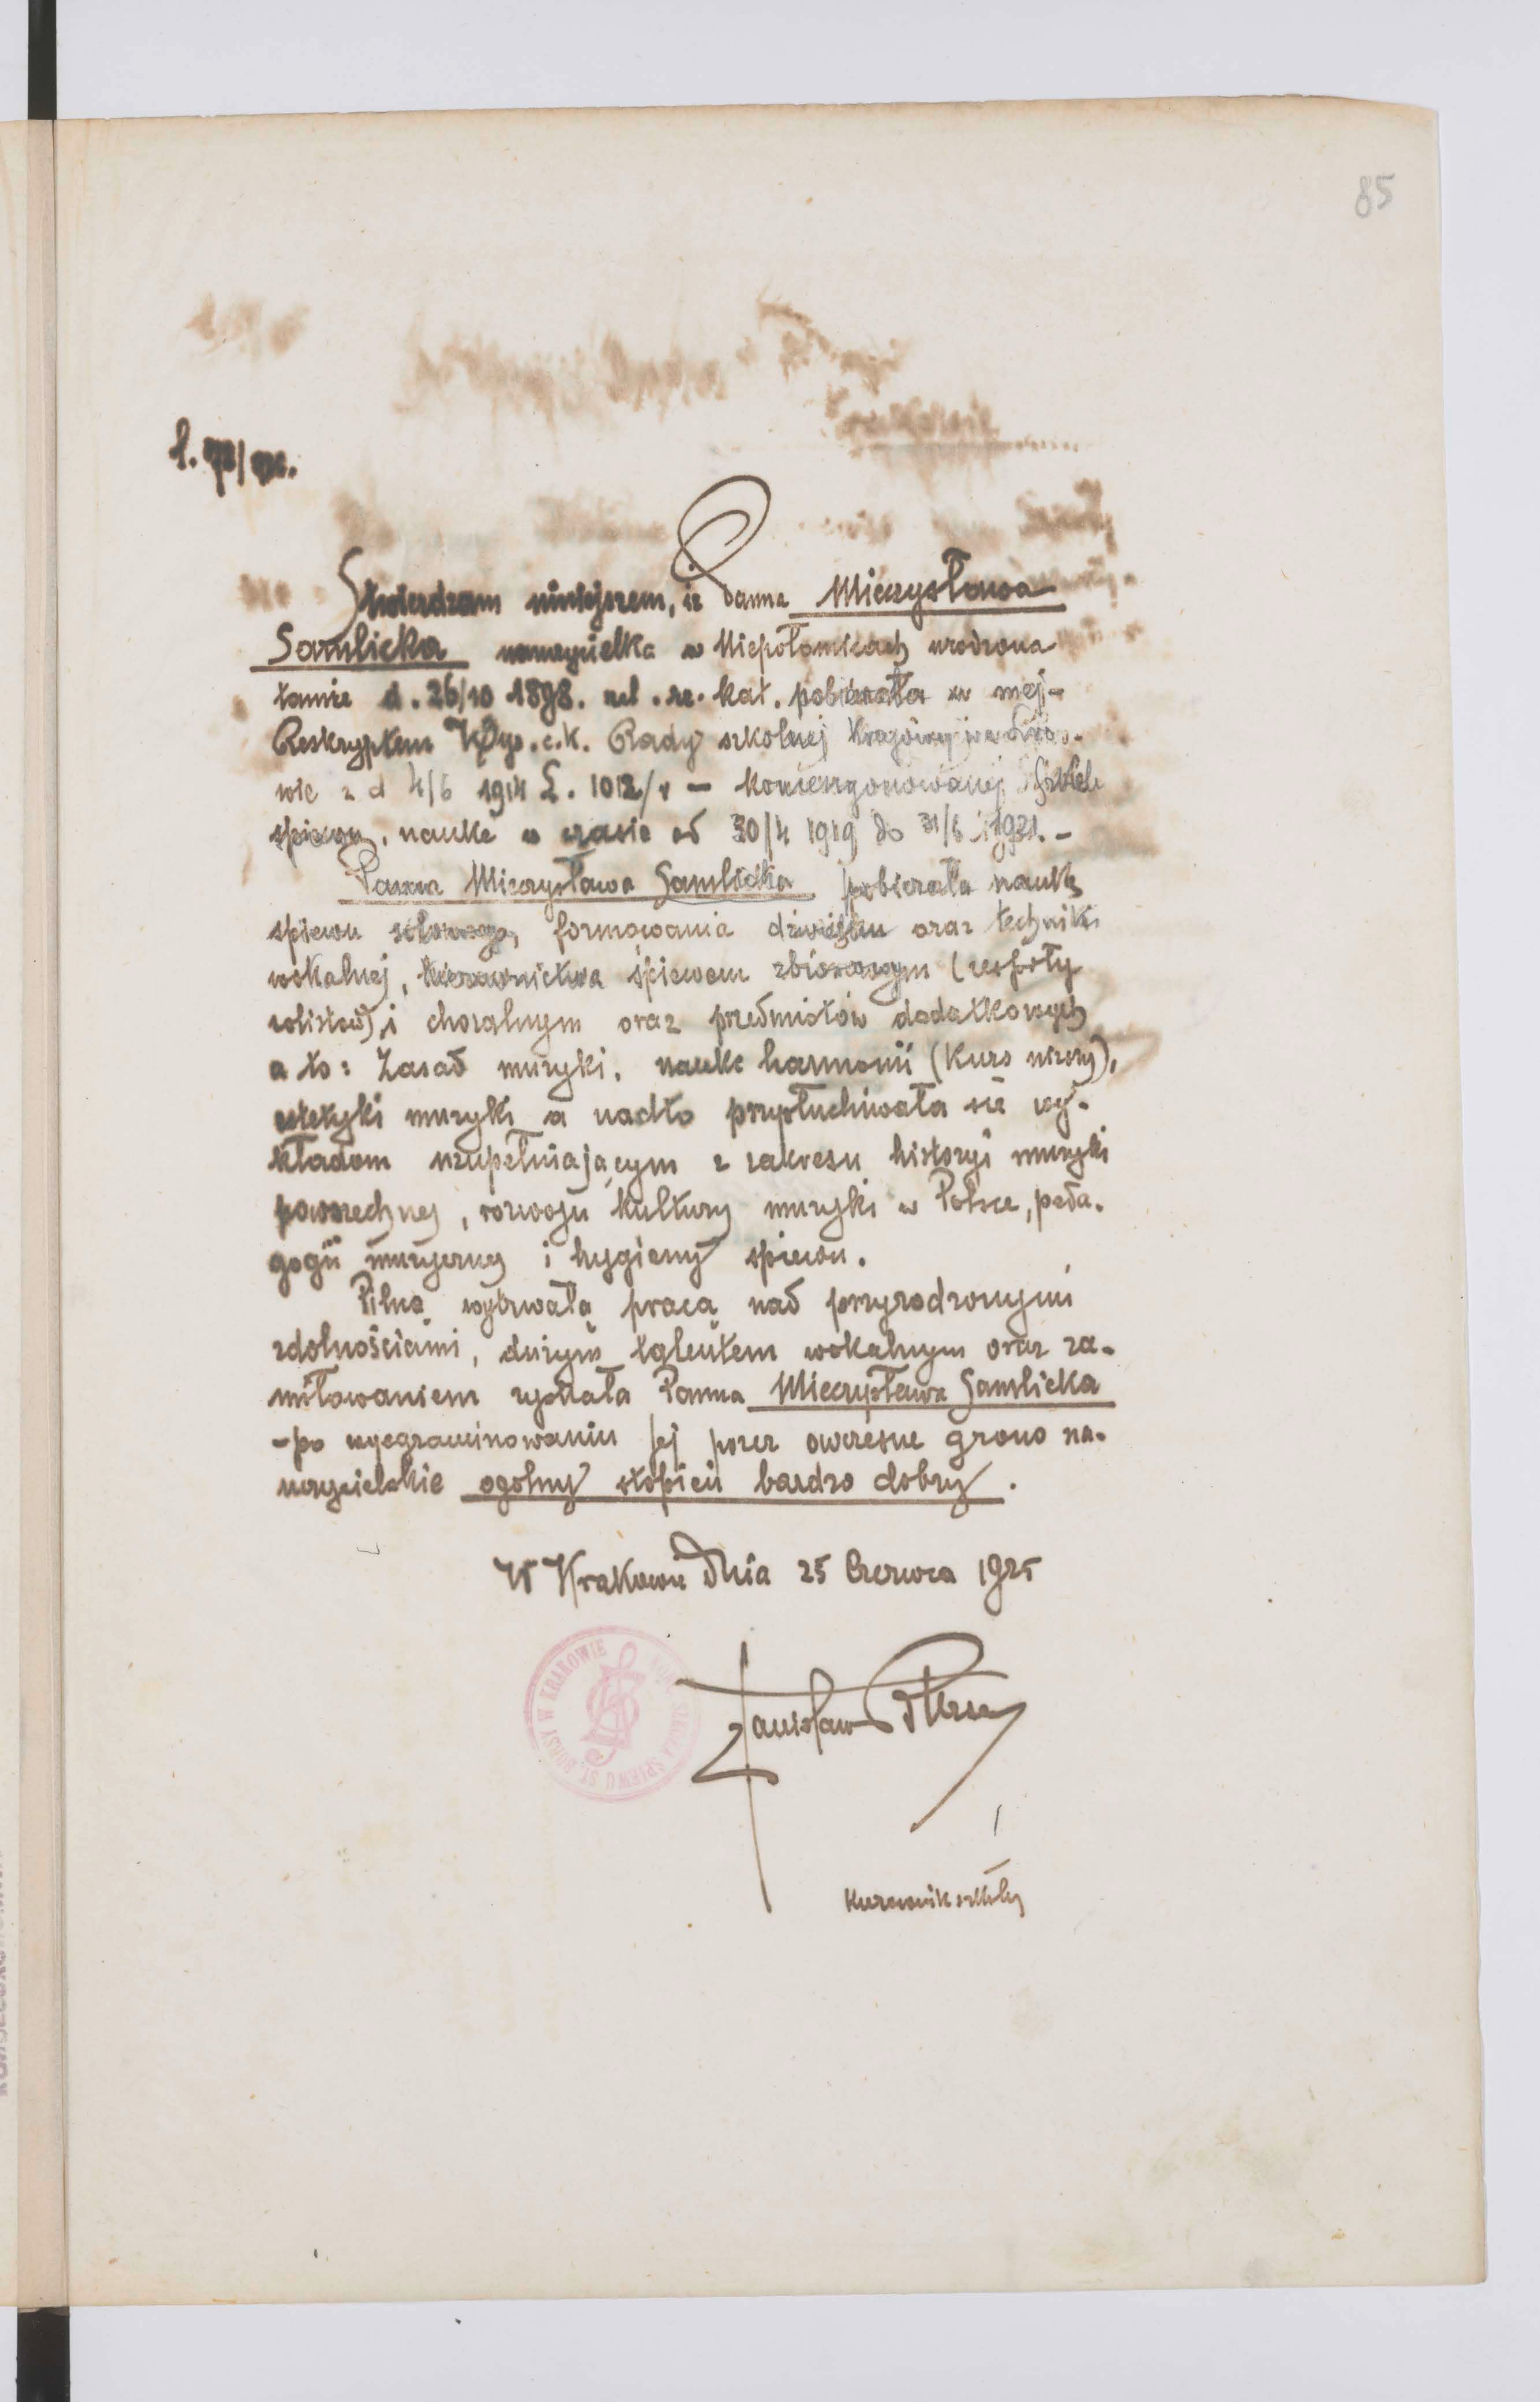 85
Stwierdzam niniejszem, iż Panna Mieczysława
Samlicka nauczycielka w Niepołomicach urodzona
tamże d. 26/10 1898. rel. rz. kat. pobierała w mej-
Reskryptem Wys. c.k. Rady szkolnej Krajowej we Lwo-
wie z d 4/6 1914 L. 1012/V – koncesyonowanej Szkole
spiewu, naukę w czasie od 30/4 1919 do 31/6 1921. –
Panna Mieczysława Samlicka pobierała naukę
spiewu solowego, formowania dźwięku oraz techniki
wokalnej, kierownictwa śpiewem zbiorowym (zespoły
solistów), i choralnym oraz przedmiotów dodatkowych
a to: Zasad muzyki, naukę harmonii (Kurs niższy),
estetyki muzyki a nadto przysłuchiwała się wy-
kładom uzupełniającym z zakresu historyi muzyki
powszechnej, rozwoju kultury muzyki w Polsce, peda-
gogii muzycznej i hygieny spiewu.
Pilną wytrwałą pracą nad przyrodzonymi
zdolnościami, dużym talentem wokalnym oraz za-
miłowaniem zyskała Panna Mieczysława Samlicka
-po wyegzaminowaniu jej przez owczesne grono na-
uczycielskie ogolny stopień bardzo dobry.
W Krakowie dnia 25 Czerwca 1925
KONC. SZKOŁA ŚPIEWU ST. BURSY W KRAKOWIE
Stanisław Bursa
Kierownik szkoły